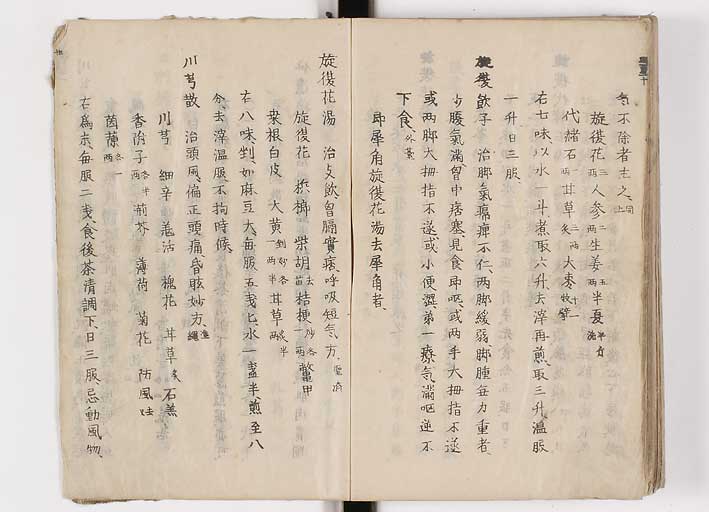 氣不除者主之
旋復花 三両 人参 二両 生姜 五両 半夏 半升 洗
代緒石 一両 甘草 三両 炙 大棗 十二枚 擘
右七味以水一斗煮取六升去滓再煎取三升温服
一升日三服
旋復飲子 治脚氣痺不仁両脚緩弱脚腫每力重者
少腹氣滿胷中痞塞見食即呕或両手大拇指不遂
或両脚大拇指不遂或小便澀弟一療氣滿呕逆不
下食 外臺
即犀角旋復花湯去犀角者
旋復花湯 治支飲胷膈實痞呼吸短气方
旋復花 梹榔 柴胡 去苗 桔梗 鼈甲
桒根白皮 大黄 甘草 炙 半
右八味剉如麻豆大每服五戋匕水一盞半煎至八
分去滓温服不拘時候
川芎散 治頭風偏正頭痛昏眩妙方
川芎 細辛 羗活 槐花 甘草 炙 石羔
香附子 荊芥 薄荷 菊花 防風
茵蔯 各一両
右為末每服二戋食後茶清調下日三服忌動風物